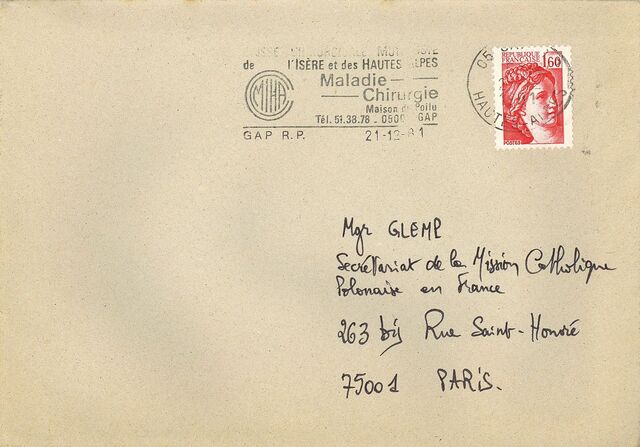 MUTUALISTE
de l'ISÈRE et des HAUTES ALPES
MIHA
Maladie
Chirurgie
Maison de Poilu
Tél. 51.38.78 - 0500 GAP
GAP R.P. 21-12-81
05
HAUTES ALPES
REPUBLIQUE
FRANÇAISE
1,60
POSTES
Mgr GLEMP
Secrétariat de la Mission Catholique
Polonaise en France
263 bis Rue Saint-Honoré
75001 PARIS.